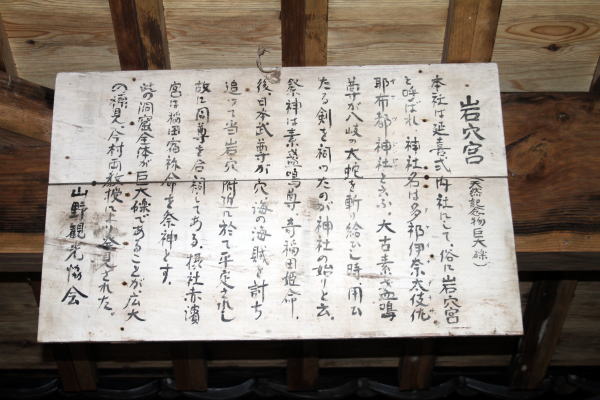 岩穴宮(天然記念物巨大礫)
本社は延喜式内社にして、俗に岩穴宮
と呼ばれ、神社名は多祁伊奈太伎佐
耶布都神社と云ふ。太古素盞嗚
尊が八岐の大蛇を斬り給ひし時、用ゐ
たる剣を祠ったのが神社の始りと云。
祭神は素盞嗚尊、奇稲田姫命。
後、日本武尊が穴海の海賊を討ち
追って当岩穴附近に於て平定されし
故に同尊を合祠してある。摂社赤濱
宮は稲田宿祢命を祭神とす。
此の洞窟全体が巨大礫であることが広大
の濡見、今村両教授により発見された。
山野観光協会